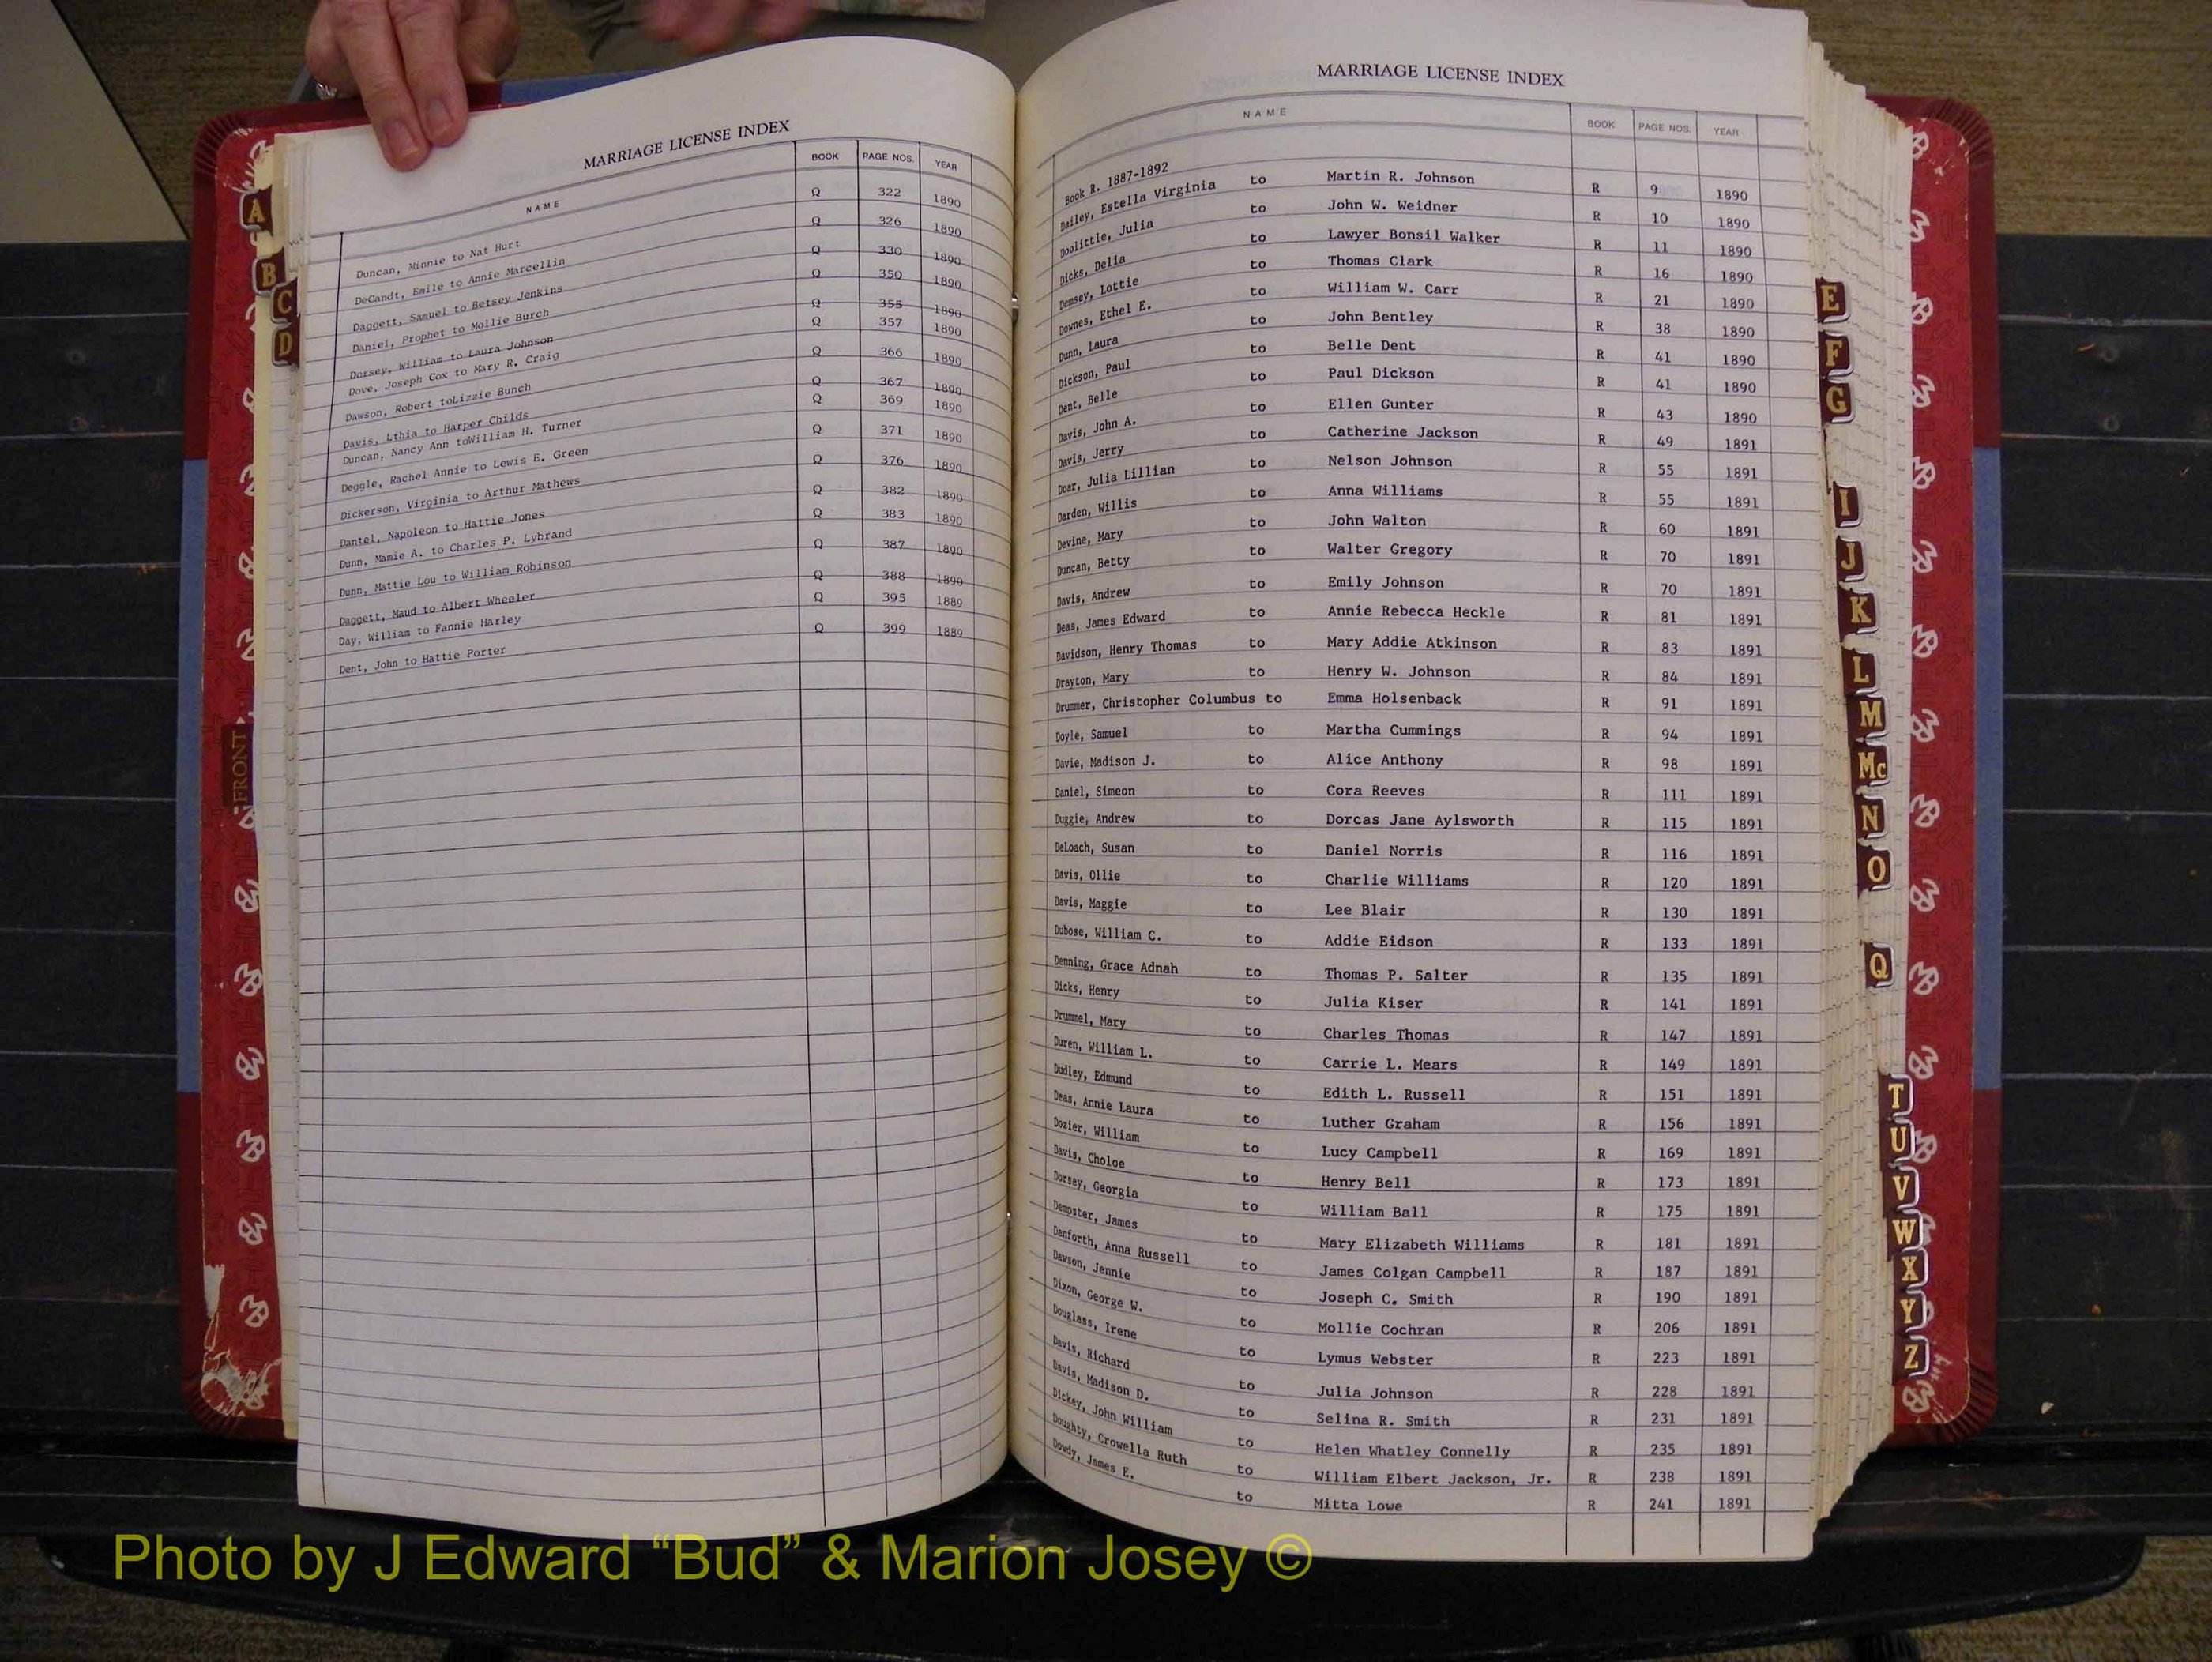 MARRIAGE LICENSE INDEX
NAME BOOK PAGE NOS. YEAR
Duncan, Minnie to Nat Hurt Q 322 1890
DeCandt, Emile to Annie Marcellin Q 326 1890
Daggett, Samuel to Betsey Jenkins Q 330 1890
Daniel, Prophet to Mollie Burch Q 350 1890
Dorsey, William to Laura Johnson Q 355 1890
Dove, Joseph Cox to Mary R. Craig Q 357 1890
Dawson, Robert toLizzie Bunch Q 366 1890
Davis, Lthia to Harper Childs Q 367 1890
Duncan, Nancy Ann toWilliam H. Turner Q 369 1890
Deggle, Rachel Annie to Lewis E. Green Q 371 1890
Dickerson, Virginia to Arthur Mathews Q 376 1890
Daniel, Napoleon to Hattie Jones Q 382 1890
Dunn, Mamie A. to Charles P. Lybrand Q 383 1890
Dunn, Mattie Lou to William Robinson Q 387 1890
Daggett, Maud to Albert Wheeler Q 388 1890
Day, William to Fannie Harley Q 395 1889
Dent, John to Hattie Porter Q 399 1889
MARRIAGE LICENSE INDEX
NAME BOOK PAGE NOS. YEAR
Book R. 1887-1892
Dailey, Estella Virginia to Martin R. Johnson R 9 1890
Doolittle, Julia to John W. Weidner R 10 1890
Dicks, Delia to Lawyer Bonsil Walker R 11 1890
Demsey, Lottie to Thomas Clark R 16 1890
Downes, Ethel E. to William W. Carr R 21 1890
Dunn, Laura to John Bentley R 38 1890
Dickson, Paul to Belle Dent R 41 1890
Dent, Belle to Paul Dickson R 41 1890
Davis, John A. to Ellen Gunter R 43 1890
Davis, Jerry to Catherine Jackson R 49 1891
Doar, Julia Lillian to Nelson Johnson R 55 1891
Darden, Willis to Anna Williams R 55 1891
Devine, Mary to John Walton R 60 1891
Duncan, Betty to Walter Gregory R 70 1891
Davis, Andrew to Emily Johnson R 70 1891
Deas, James Edward to Annie Rebecca Heckle R 81 1891
Davidson, Henry Thomas to Mary Addie Atkinson R 83 1891
Drayton, Mary to Henry W. Johnson R 84 1891
Drummer, Christopher Columbus to Emma Holsenback R 91 1891
Doyle, Samuel to Martha Cummings R 94 1891
Davie, Madison J. to Alice Anthony R 98 1891
Daniel, Simeon to Cora Reeves R 111 1891
Duggie, Andrew to Dorcas Jane Aylsworth R 115 1891
DeLoach, Susan to Daniel Norris R 116 1891
Davis, Ollie to Charlie Williams R 120 1891
Davis, Maggie to Lee Blair R 130 1891
Dubose, William C. to Addie Eidson R 133 1891
Denning, Grace Adnah to Thomas P. Salter R 135 1891
Dicks, Henry to Julia Kiser R 141 1891
Drummel, Mary to Charles Thomas R 147 1891
Duren, William L. to Carrie L. Mears R 149 1891
Dudley, Edmund to Edith L. Russell R 151 1891
Deas, Annie Laura to Luther Graham R 156 1891
Dozier, William to Lucy Campbell R 169 1891
Davis, Choloe to Henry Bell R 173 1891
Dorsey, Georgia to William Ball R 175 1891
Dempster, James to Mary Elizabeth Williams R 181 1891
Danforth, Anna Russell to James Colgan Campbell R 187 1891
Dawson, Jennie to Joseph C. Smith R 190 1891
Dixon, George W. to Mollie Cochran R 206 1891
Douglass, Irene to Lymus Webster R 223 1891
Davis, Richard to Julia Johnson R 228 1891
Davis, Madison D. to Selina R. Smith R 231 1891
Dickey, John William to Helen Whatley Connelly R 235 1891
Doughty, Crowella Ruth to William Elbert Jackson, Jr. R 238 1891
Dowdy, James E. to Mitta Lowe R 241 1891
A
B
C
D
FRONT
E
F
G
I
J
K
L
M
Mc
N
O
Q
T
U
V
W
X
Y
Z
Photo by J Edward “Bud” & Marion Josey ©